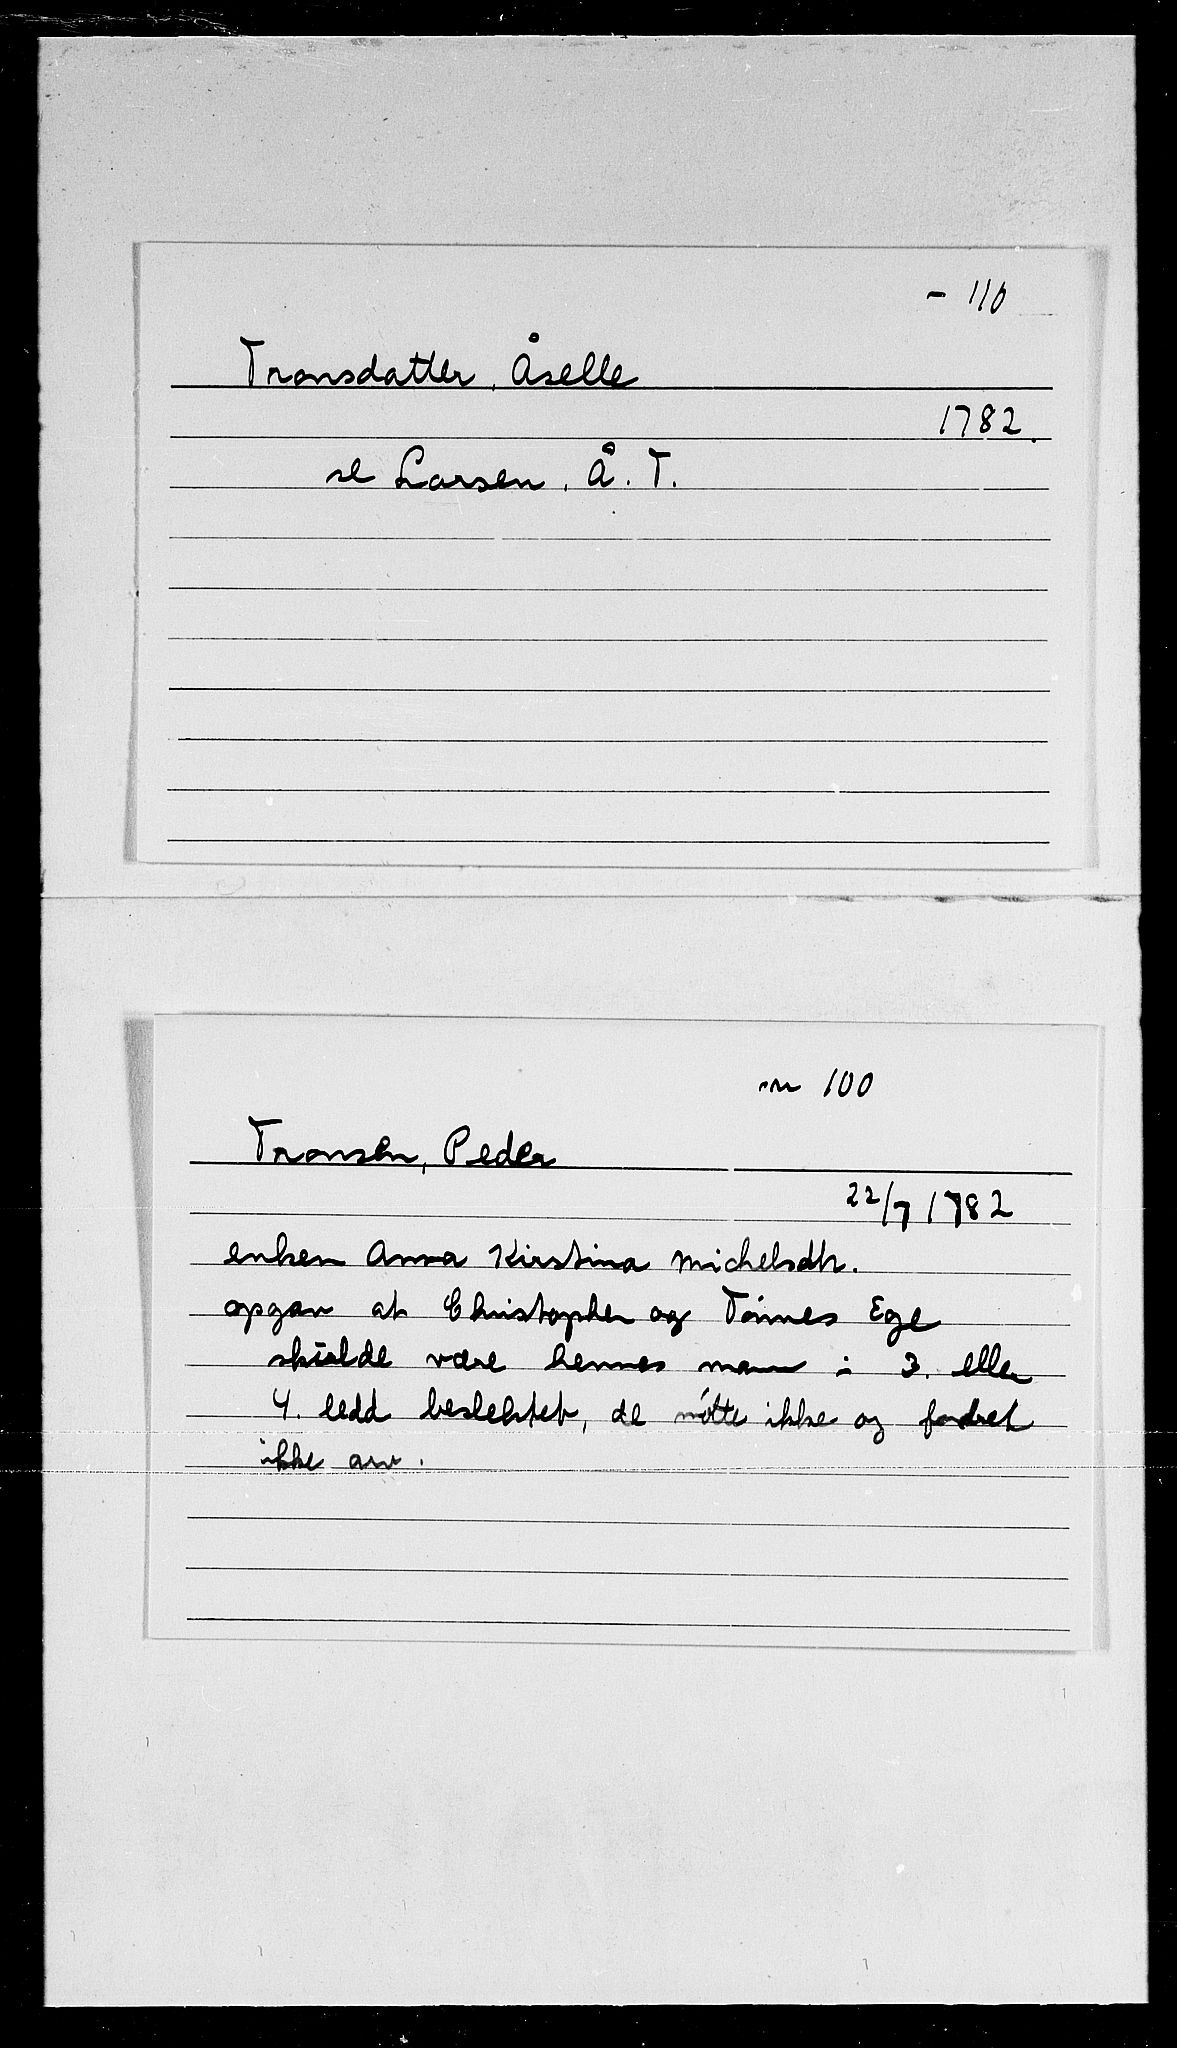 - 110
Tronsdatter, Åselle
1782.
se Larsen, Å. T.
nr 100
Tronsen, Peder
22/7 1782
enken Anna Kirstina Michelsdtr.
opgav at Christopher og Tönnes Ege
skulde være hennes mann i 3. eller
4. ledd beslektet, de møtte ikke og fordret
ikke arv.